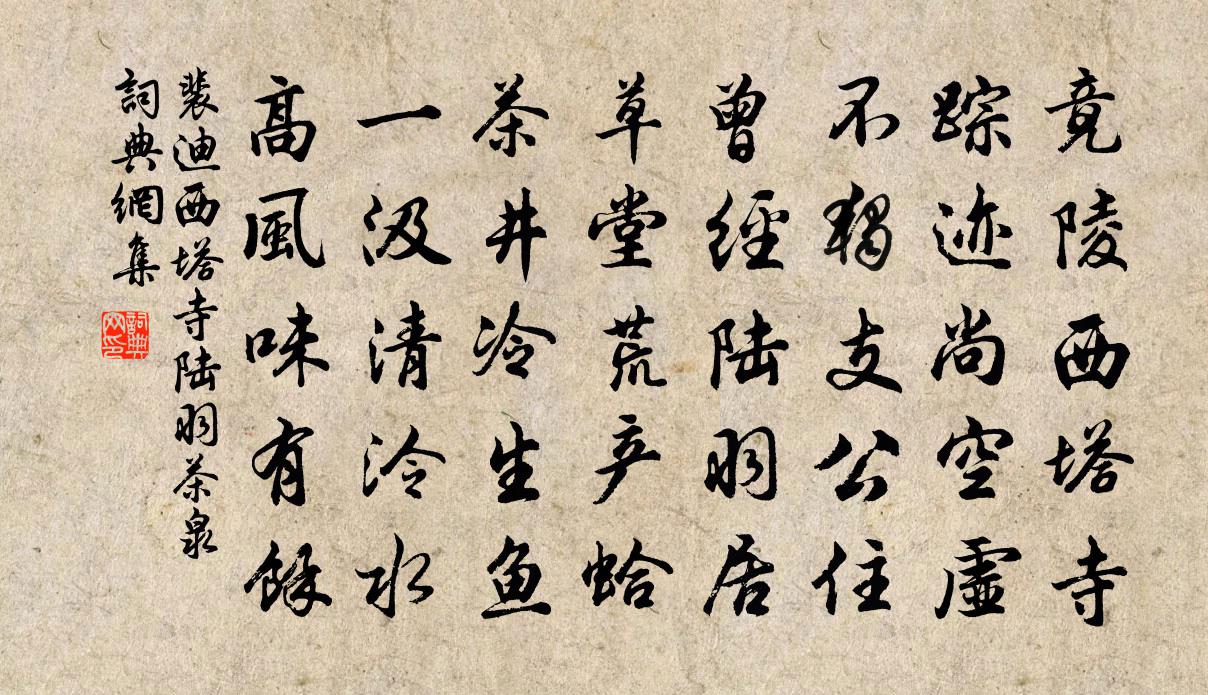 竟陵西塔寺
踪迹尚空虛
不獨支公住
曾經陆羽居
草堂荒产蛤
茶井冷生鱼
一汲清泠水
高風味有餘
裴迪西塔寺陆羽茶泉
詞典網集
詞典网印